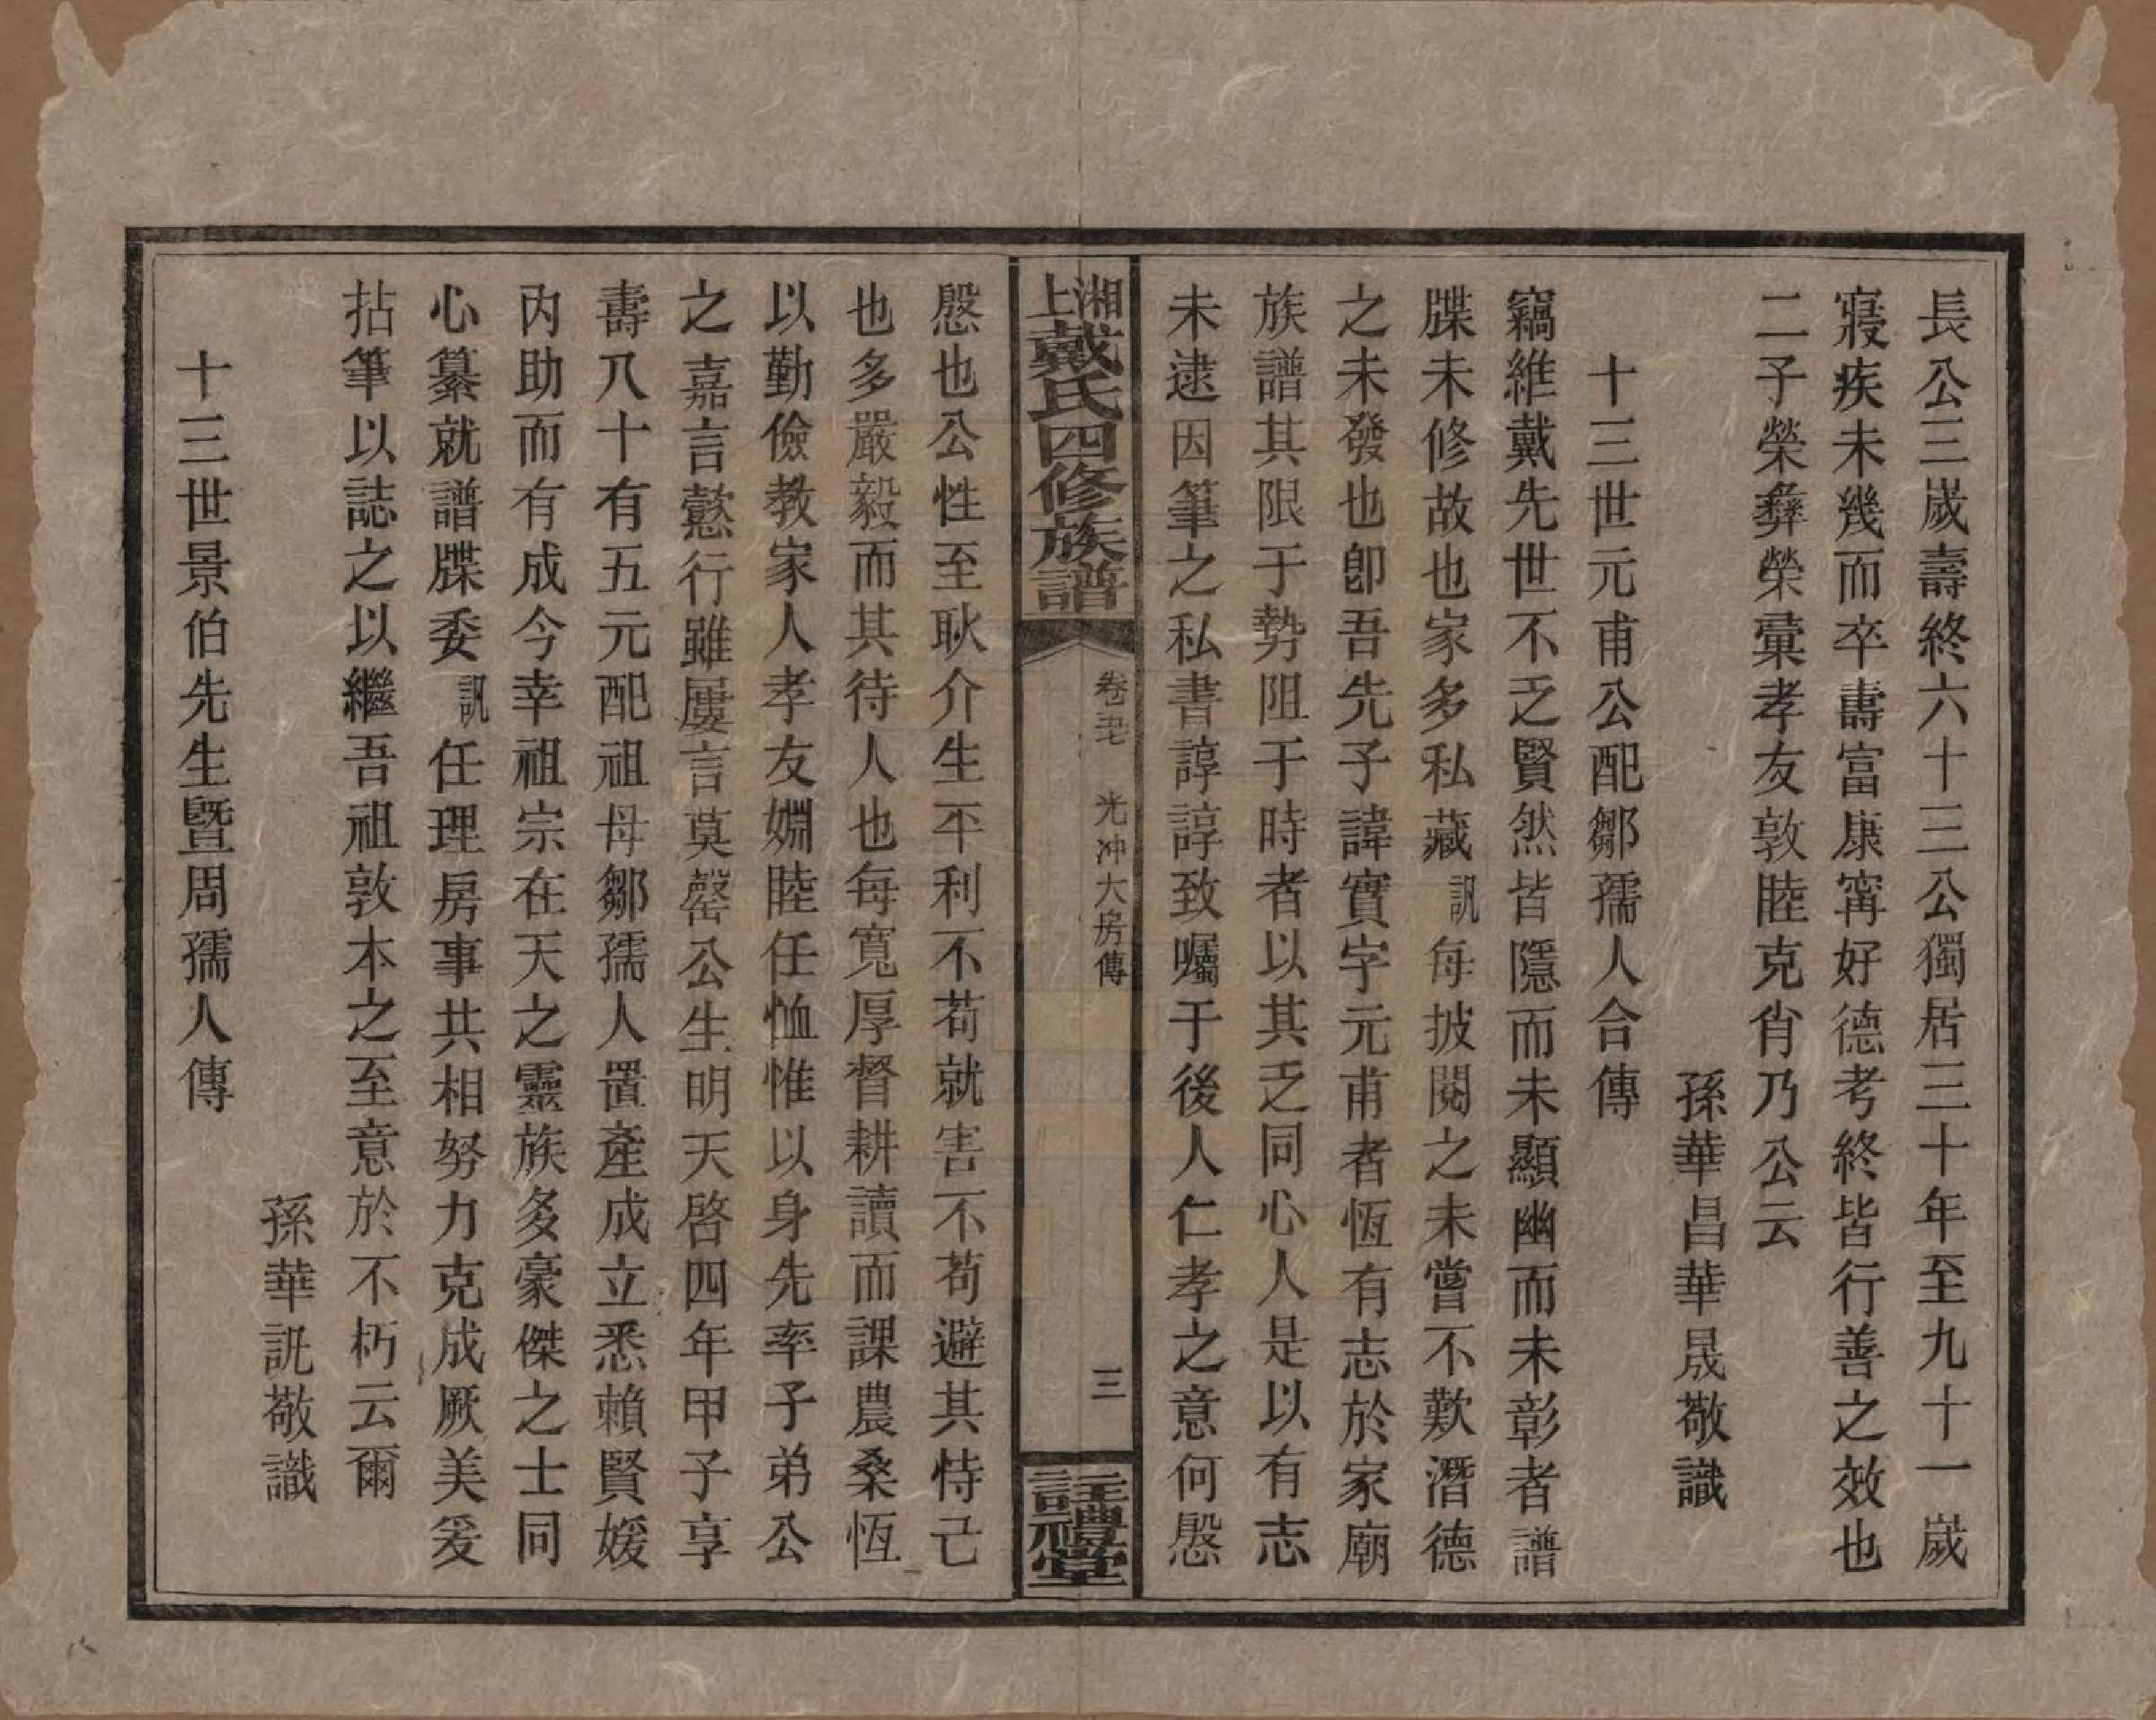 長公三歲壽終六十三公獨居三十年至九十一歲
寢疾未幾而卒壽富康寗好德考終皆行善之效也
二子榮彝榮彙孝友敦睦克肖乃公云
孫華昌華晟敬識
十三世元甫公配鄒孺人合傳
竊維戴先世不乏賢然皆隱而未顯幽而未彰者譜
牒未修故也家多私藏訊每披閱之未嘗不歎潛德
之未發也卽吾先子諱實字元甫者恆有志於家廟
族譜其限于勢阻于時者以其乏同心人是以有志
未逮因筆之私書諄諄致囑于後人仁孝之意何慇
湘上戴氏四修族譜
卷五 光冲大房傳
三
註禮堂
慇也公性至耿介生平利不苟就害不苟避其恃己
也多嚴毅而其待人也每寬厚督耕讀而課農桑恆
以勤儉教家人孝友婣睦任恤惟以身先率子弟公
之嘉言懿行雖屢言莫罄公生明天啓四年甲子享
壽八十有五元配祖母鄒孺人置產成立悉賴賢媛
內助而有成今幸祖宗在天之靈族多豪傑之士同
心纂就譜牒委訊任理房事共相努力克成厥美爰
拈筆以誌之以繼吾祖敦本之至意於不朽云爾
孫華訊敬識
十三世景伯先生曁周孺人傳